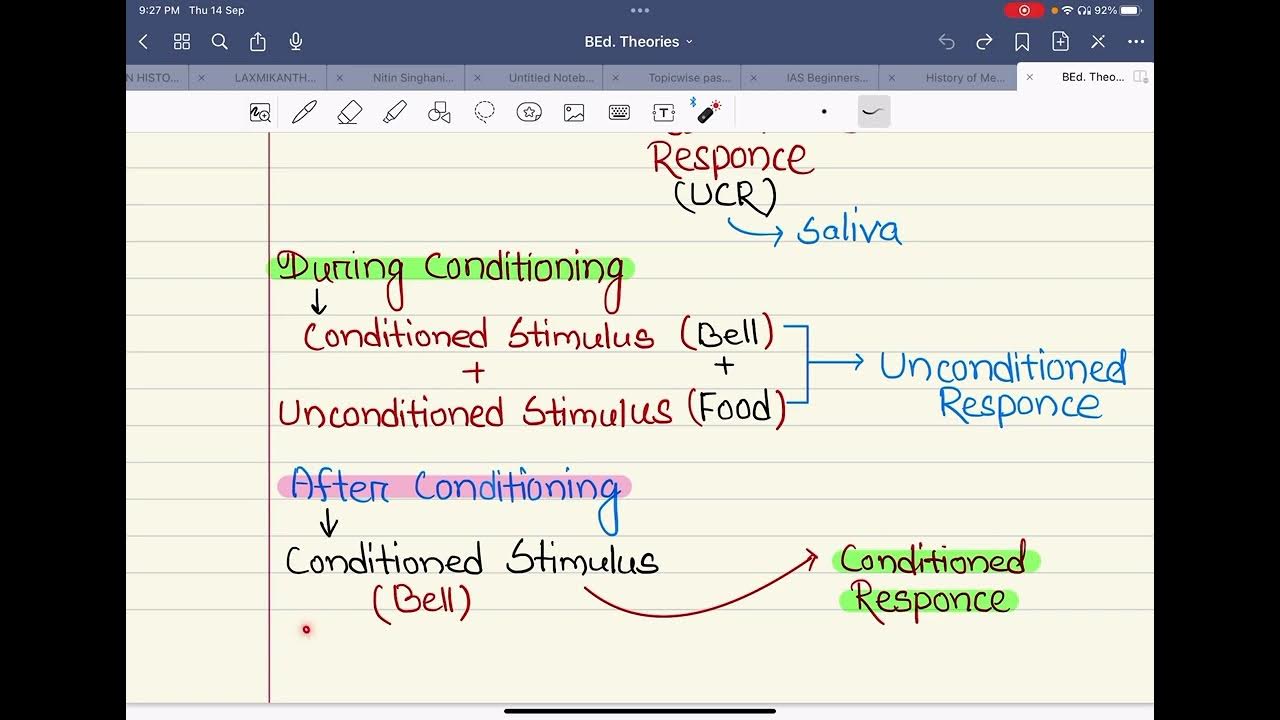 9:27 PM Thu 14 Sep
92%
BEd. Theories
N HISTO...
LAXMIKANTH...
Nitin Singhani...
Untitled Noteb...
Topicwise pas...
IAS Beginners...
History of Me...
BEd. Theo...
Responce
(UCR)
Saliva
During Conditioning
Conditioned Stimulus (Bell)
+ +
Unconditioned
Responce
Unconditioned Stimulus (Food)
After Conditioning
Conditioned Stimulus
(Bell)
Conditioned
Responce